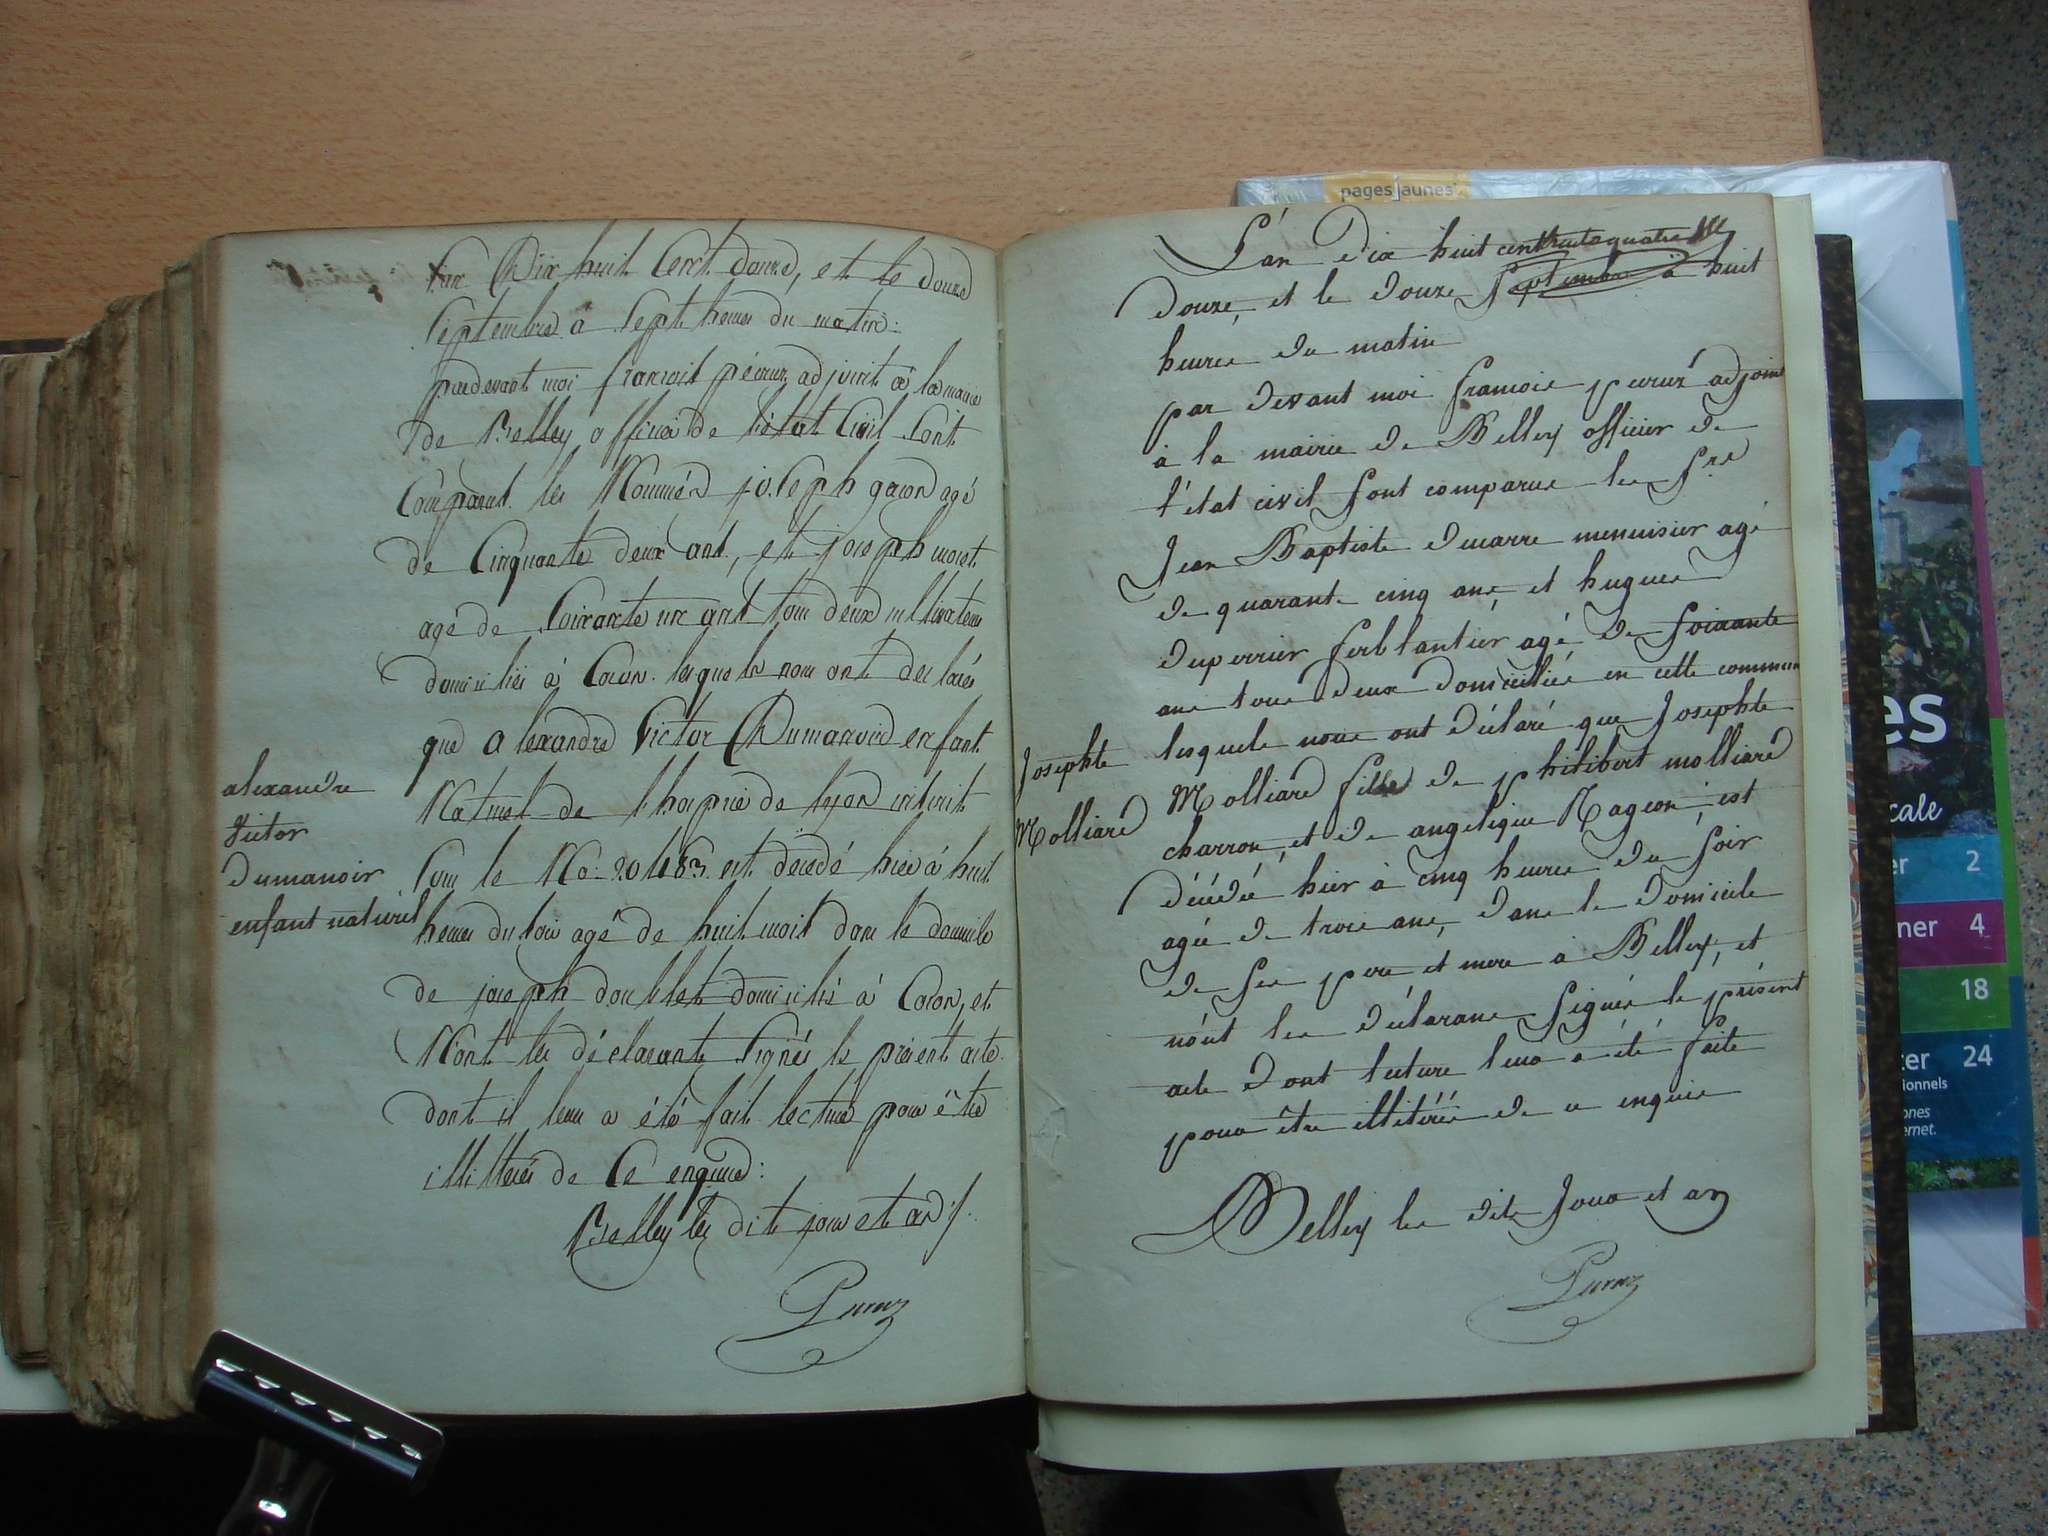 L'an Dix huit Cent douze, et le douze
Septembre à Sept heures du matin:
pardevant moi françois péeruz adjoint à la mairie
de Belley officier de l'état Civil Sont
Comparut les Nommés joseph gacon agé
de Cinquante deux ans, et joseph moret
agé de Soixante un ans tous deux cultivateurs
domiciliés à Coron. lesquels nous ont déclarés
que alexandre Victor Dumanoird enfant
Naturel de l'hospice de lyon inscrit
Sous le No. 20483. est décédé hier à huit
heures du soir agé de huit mois dans le domicile
de joseph doublet domicilié à Coron, et
N'ont les déclarants Signés le présent acte
dont il leur a été fait lecture pour être
illitterés de Ce enquis:
Belley les dits jour et an ./.
alexandre
Victor
Dumanoir
enfant naturel
L'an Dix huit cent
Douze, et le Douze Septembre à huit
heures du matin
par devant moi françois peeruz adjoint
à la mairie de Belley officier de
l'état civil sont comparus les Srs
Jean Baptiste Ducarre menuisier agé
de quarante cinq ans, et hugues
Duperrier ferblantier agé de soixante
ans tous deux domiciliés en cette commune
lesquels nous ont déclaré que Josephte
Molliard fille de philibert molliard
charron, et de angelique Rageon, est
décédée hier à cinq heures du soir
agée de trois ans, dans le Domicile
de ses pere et mere à Belley, et
n'ont les déclarans signés le présent
acte dont lecture leur a été faite
pour être illitérés de ce enquis
Belley les dits Jour et an
Josephte
Molliard
pages jaunes
es
cale
er 2
ner 4
18
ter 24
ionnels
ones
ernet.